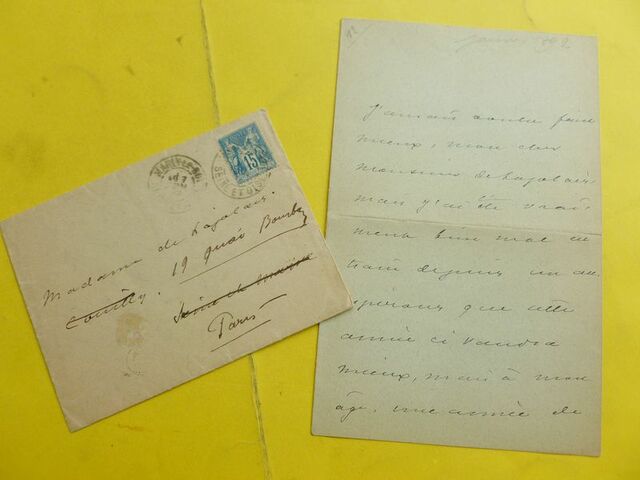 15
SEINE ET OISE
Madame de Lajolais
Couilly. 19 quai Bourbon
Seine et Marne
Paris
12
janvier 1892
J'aurais voulu faire
mieux, mon cher
Monsieur de Lajolais
mais j'ai été vrai-
ment bien mal en
train depuis un an.
espérons que cette
année ci vaudra
mieux, mais à mon
âge, une année de